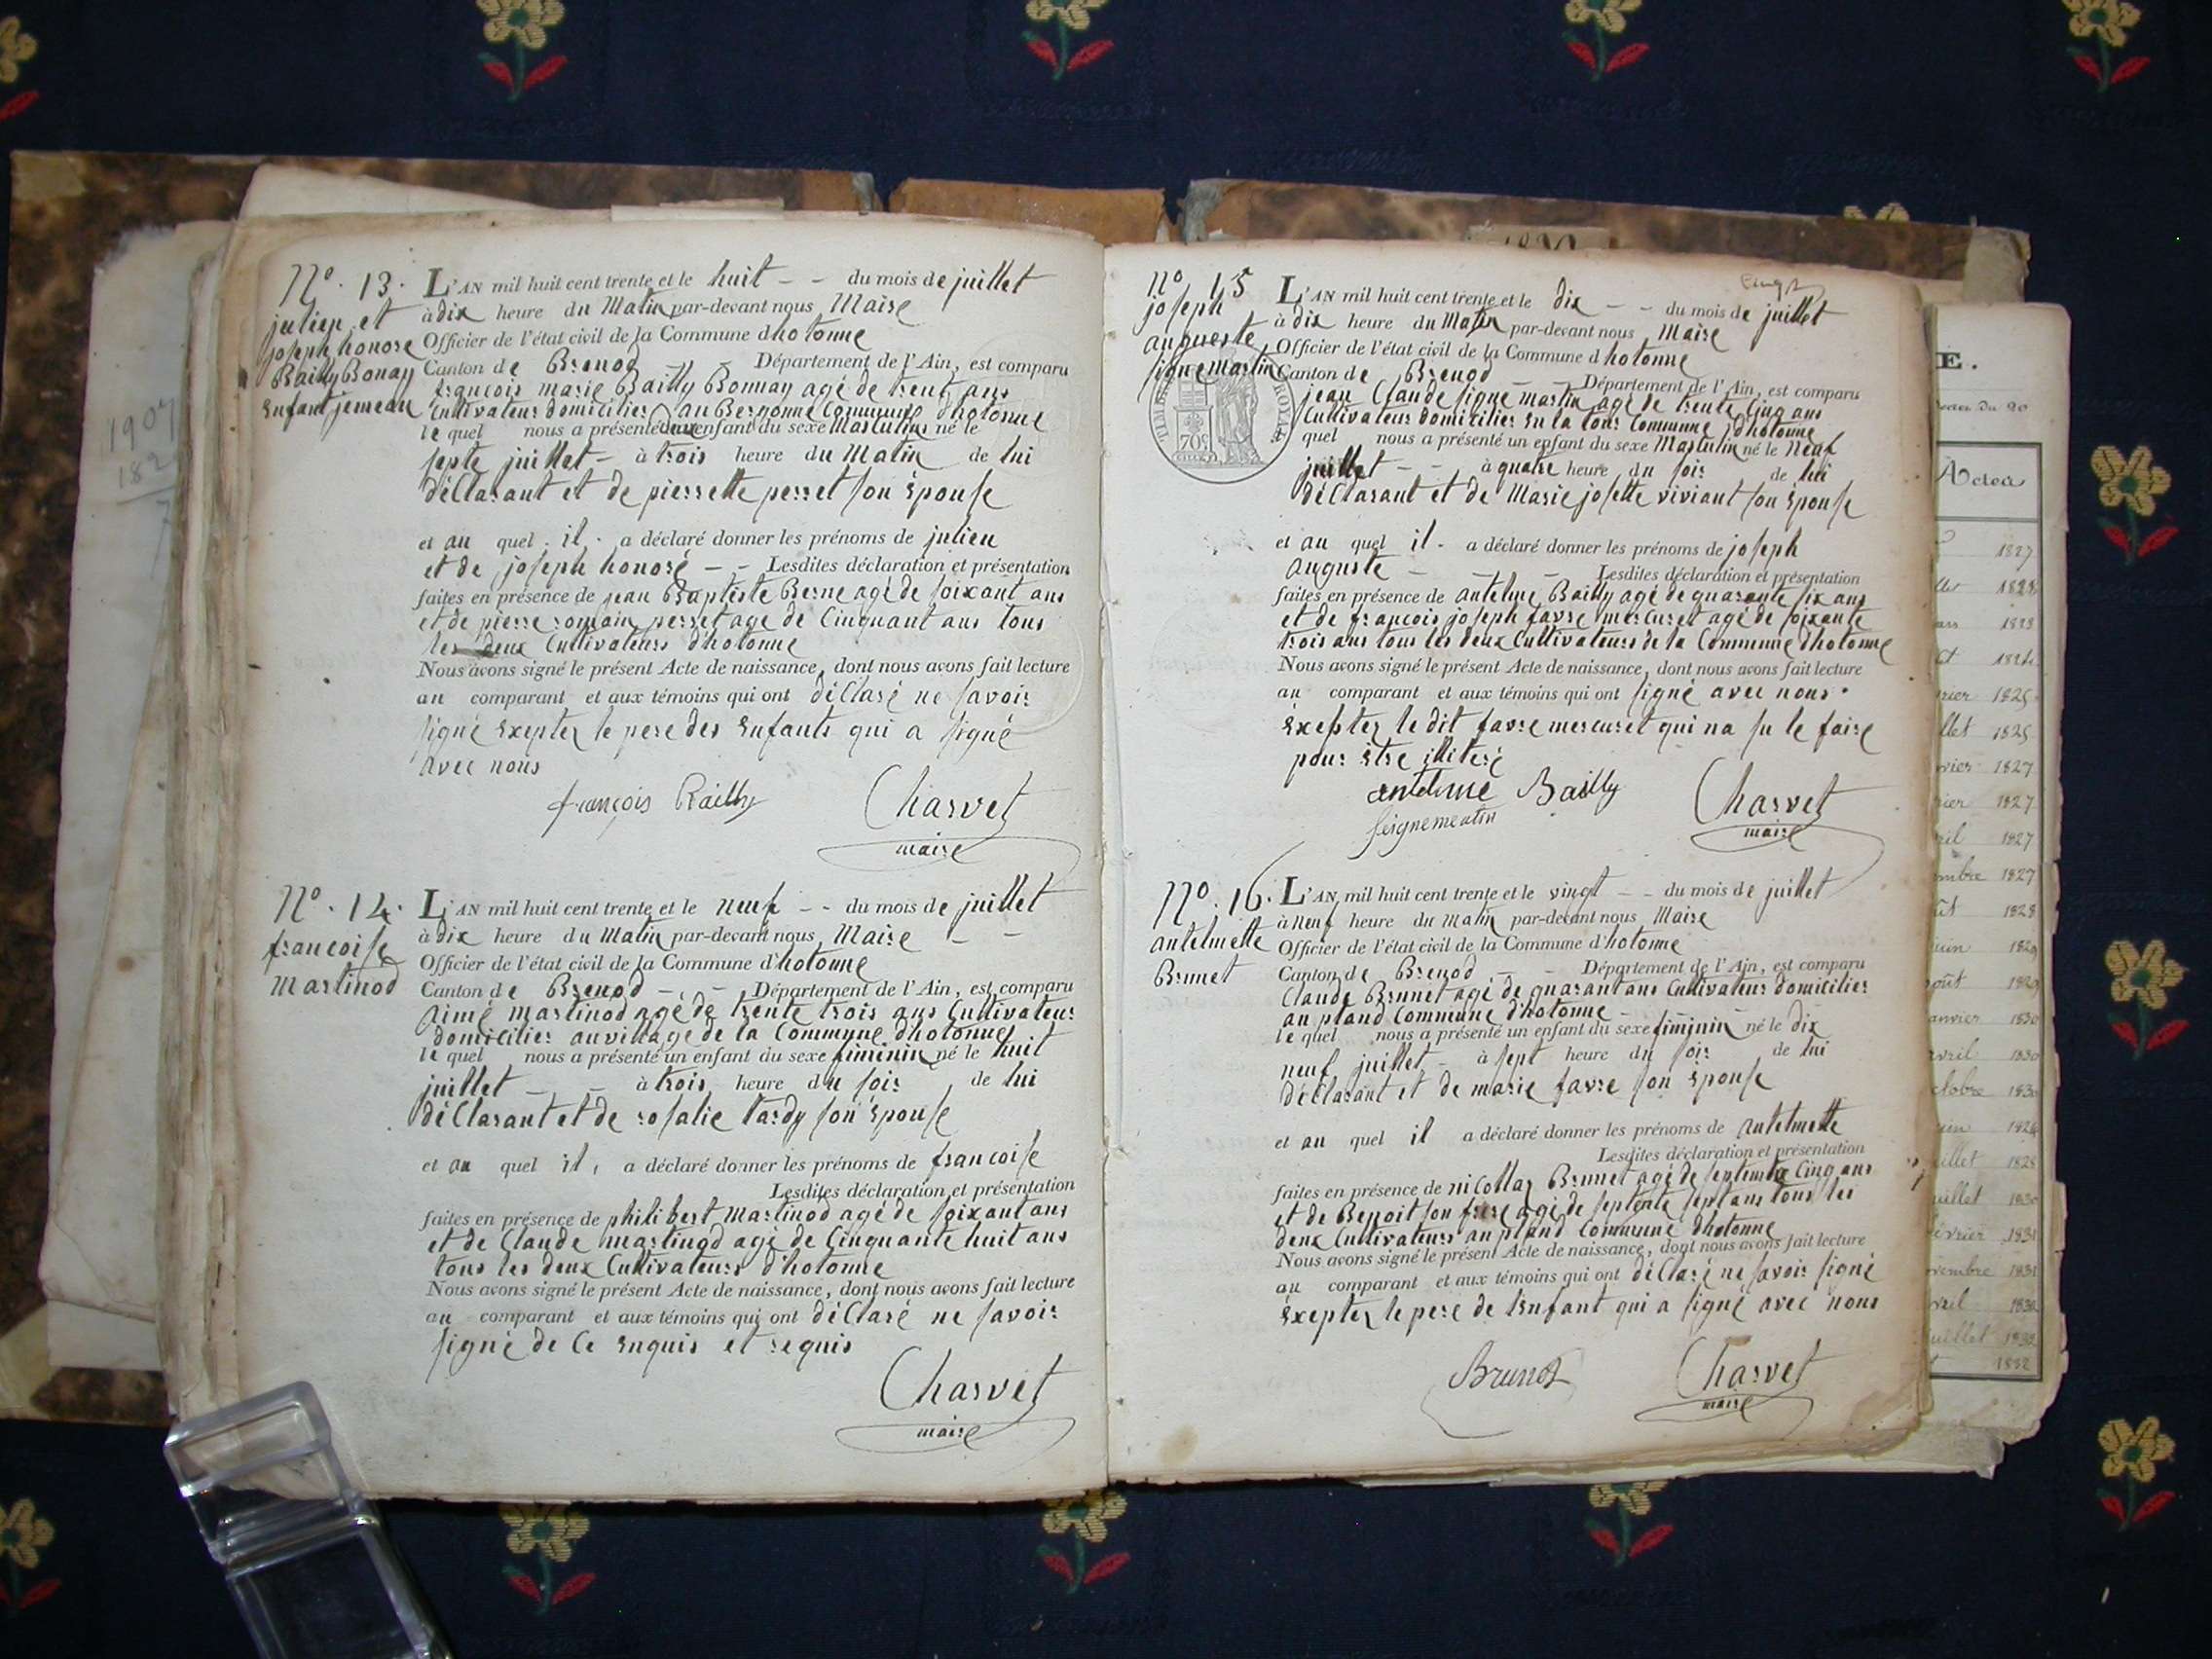 1907
182
7
N.º 13.
julien et
joseph honore
Bailly Bonay
Enfant jemeau
L'AN mil huit cent trente et le huit - - du mois de juillet
à dix heure du Matin par-devant nous Maire
Officier de l'état civil de la Commune d hotonne
Canton de Brenod - Département de l'Ain, est comparu
françois marie Bailly Bonnay agé de trent ans
Cultivateur domicilier au Bergonne Commune d'hotonne
le quel nous a présenté deux enfant du sexe Masculins né le
septe juillet - à trois heure du Matin de lui
déClarant et de pierrette perret son épouse
et au quel il a déclaré donner les prénoms de julien
et de joseph honoré - - Lesdites déclaration et présentation
faites en présence de jean Baptiste Berne agé de soixant ans
et de pierre romain perret age de Cinquant ans tous
les deux Cultivateurs d'hotonne
Nous avons signé le présent Acte de naissance, dont nous avons fait lecture
au comparant et aux témoins qui ont déClaré ne savoir
signé Exepter le pere des Enfants qui a signé
avec nous
françois Bailly Charvet
maire
N.º 14.
francoise
Martinod
L'AN mil huit cent trente et le neuf - - du mois de juillet
à dix heure du Matin par-devant nous Maire - -
Officier de l'état civil de la Commune d'hotonne
Canton de Brenod - - Département de l'Ain, est comparu
aimé martinod agé de trente trois ans Cultivateur
domicilier au village de la Commune d'hotonne
le quel nous a présenté un enfant du sexe féminin né le huit
juillet - - à trois heure du soir de lui
déClarant et de rosalie tardy son épouse
et au quel il a déclaré donner les prénoms de francoise
Lesdites déclaration et présentation
faites en présence de philibert Martinod agé de soixant ans
et de Claude martinod agé de Cinquante huit ans
tous les deux Cultivateurs d'hotonne
Nous avons signé le présent Acte de naissance, dont nous avons fait lecture
au comparant et aux témoins qui ont déClaré ne savoir
signé de Ce Enquis et requis
Charvet
maire
Nº 15
joseph
augueste
signe martin
TIMBRE ROYAL
70c
L'AN mil huit cent trente et le dix - - du mois de juillet
à dix heure du Matin par-devant nous Maire
Officier de l'état civil de la Commune d hotonne
Canton de Brenod - - Département de l'Ain, est comparu
jean Claude signe martin agé de trente Cinq ans
Cultivateur domicilier En la Cour Commune d'hotonne
quel nous a présenté un enfant du sexe Masculin né le Neuf
juillet - - à quatre heure du soir de lui
déClarant et de Marie josette viviant son Epouse
et au quel il a déclaré donner les prénoms de joseph
auguste - - - Lesdites déclaration et présentation
faites en présence de antelme Bailly agé de quarante six ans
et de francois joseph favre mercuret agé de soixante
trois ans tous les deux Cultivateurs de la Commune d'hotonne
Nous avons signé le présent Acte de naissance, dont nous avons fait lecture
au comparant et aux témoins qui ont signé avec nous
Exepter le dit favre mercuret qui na su le faire
pour Etre illiteré
antelme Bailly Charvet
Seignemartin maire
Nº. 16.
antelmette
Brunet
L'AN mil huit cent trente et le vingt - - du mois de juillet
à neuf heure du matin par-devant nous Maire
Officier de l'état civil de la Commune d'hotonne
Canton de Brenod - - Département de l'Ain, est comparu
Claude Brunet agé de quarant ans Cultivateur domicilier
au pland Commune d'hotonne
le quel nous a présenté un enfant du sexe fiminin né le dix
neuf juillet - à sept heure du soir de lui
déClarant et de marie favre son Epouse
et au quel il a déclaré donner les prénoms de antelmette
Lesdites déclaration et présentation
faites en présence de nicollas Brunet agé de septente Cinq ans
et de Benoit son frere agé de septente sept ans tous les
deux Cultivateurs au pland Commune d'hotonne
Nous avons signé le présent Acte de naissance, dont nous avons fait lecture
au comparant et aux témoins qui ont déClaré ne savoir signé
Exepter le pere de l'Enfant qui a signé avec nous
Brunet Charvet
maire
E.
Actes
1827
1828
1828
1824
rier 1825
llet 1825
vrier 1827
rier 1827
ril 1827
mbre 1827
ût 1828
uin 1829
oût 1829
anvier 1830
vril 1830
ctobre 1830
uin 1826
uillet 1828
uillet 1830
évrier 1831
vembre 1831
vril 1832
uillet 1832
1832